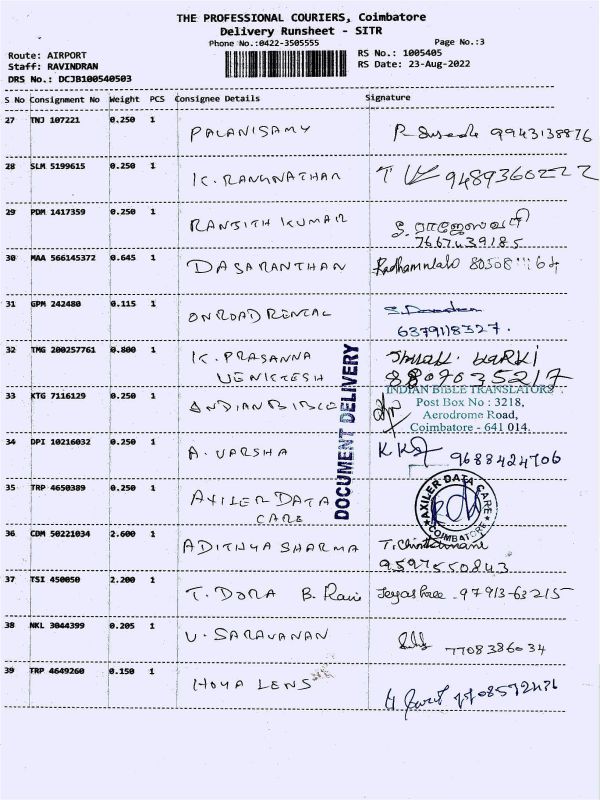 THE PROFESSIONAL COURIERS, Coimbatore
Delivery Runsheet - SITR
Phone No.:0422-3505555 Page No.:3
Route: AIRPORT RS No.: 1005405
Staff: RAVINDRAN RS Date: 23-Aug-2022
DRS No.: DCJB100540503
S No Consignment No Weight PCS Consignee Details Signature
27 TNJ 107221 0.250 1 PALANISAMY 9943138876
28 SLM 5199615 0.250 1 K. RANGNATHAN 9489360222
29 PDM 1417359 0.250 1 RANJITH KUMAR S. ராஜேஸ்வரி
7667439185
30 MAA 566145372 0.645 1 DASARANTHAN
31 GPM 242480 0.115 1 ONROAD RENTAL
6379118327.
32 TMG 200257761 0.800 1 K. PRASANNA
VENKTESH 8870735217
33 KTG 7116129 0.250 1 INDIAN BIBLE INDIAN BIBLE TRANSLATORS
Post Box No : 3218,
Aerodrome Road,
Coimbatore - 641 014.
34 DPI 10216032 0.250 1 A. VARSHA 9688424706
35 TRP 4650389 0.250 1 AXILER DATA
CARE
AXILER DATA CARE
COIMBATORE
36 CDM 50221034 2.600 1 ADITHYA SHARMA T. Chinthamani
9597550843
37 TSI 450050 2.200 1 T. DORA B. Rani Jeyashree . 97913-63215
38 NKL 3044399 0.205 1 V. SARAVANAN 7708386034
39 TRP 4649260 0.150 1 HOYA LENS
DOCUMENT DELIVERY